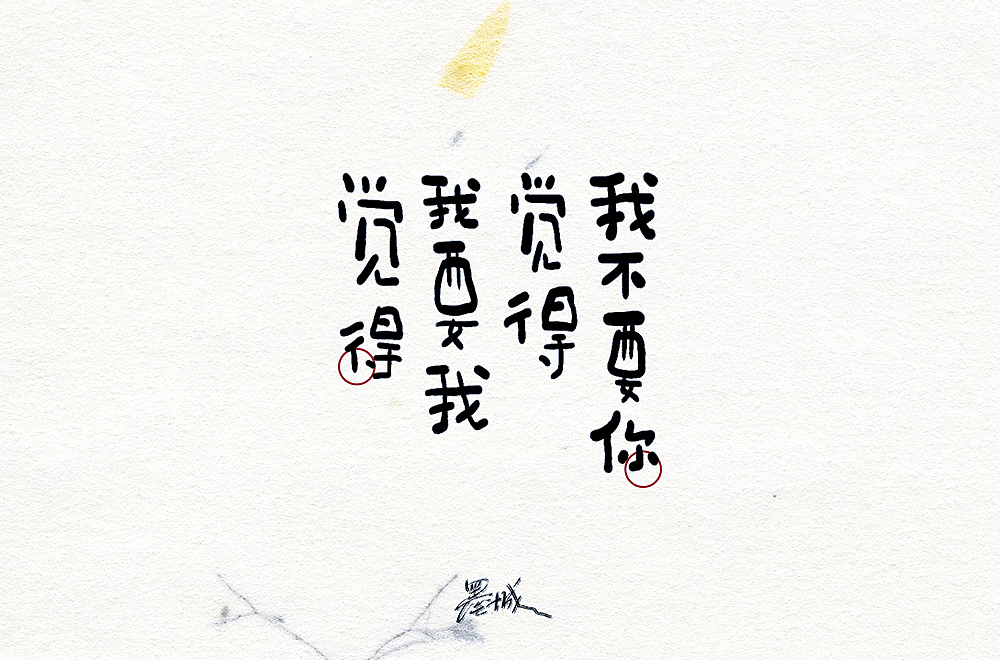 我不要你
觉得
我要我
觉得
墨城